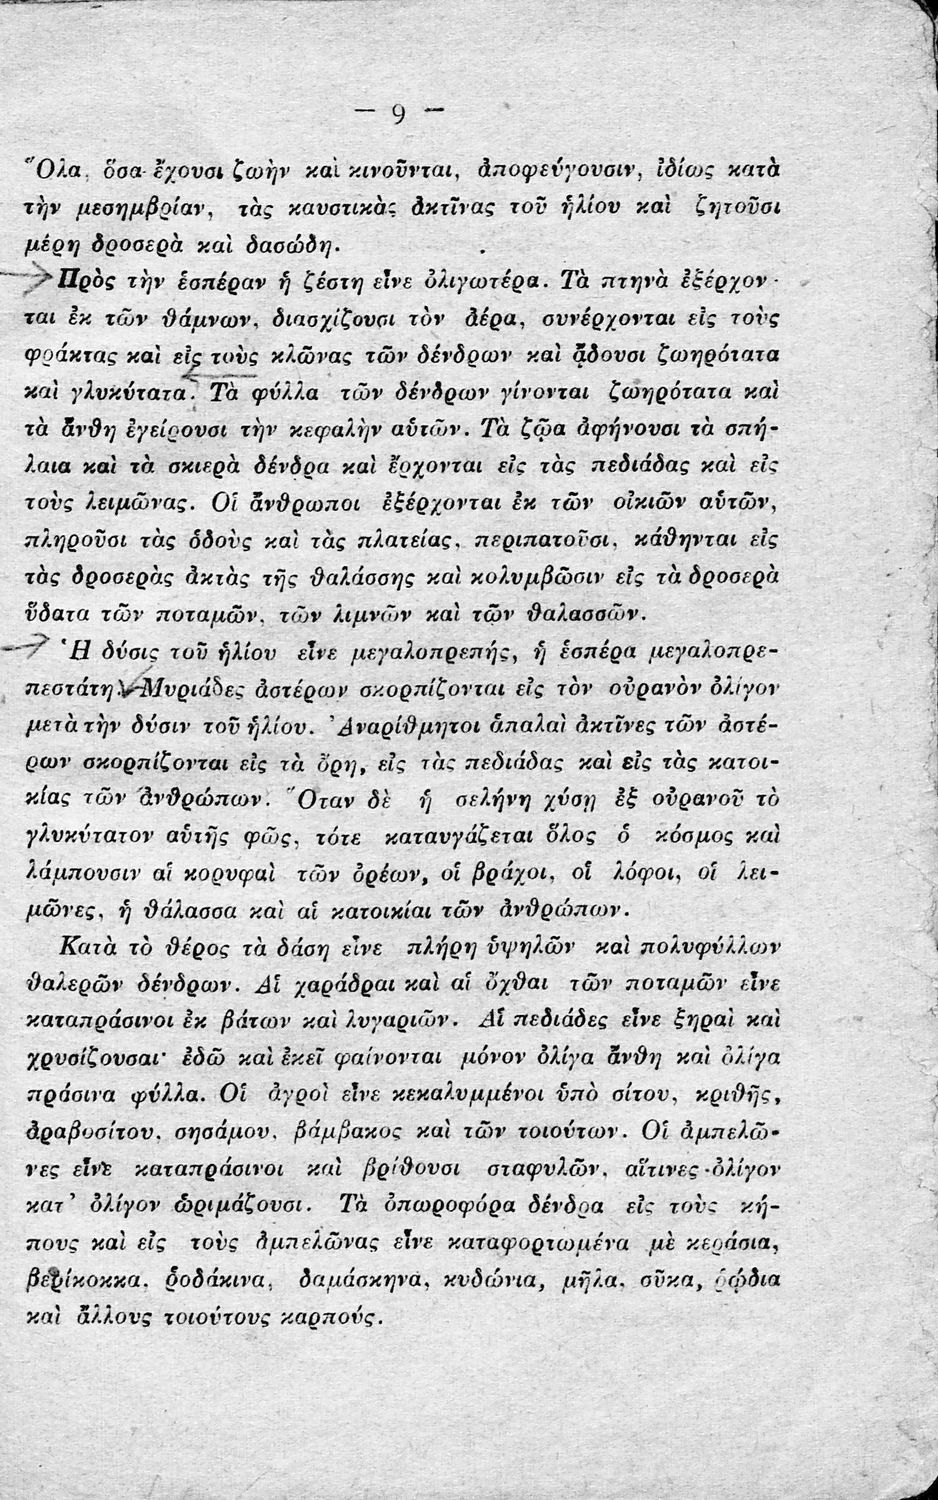 — 9 —
Ὅλα, ὅσα ἔχουσι ζωὴν καὶ κινοῦνται, ἀποφεύγουσιν, ἰδίως κατὰ
τὴν μεσημβρίαν, τὰς καυστικὰς ἀκτῖνας τοῦ ἡλίου καὶ ζητοῦσι
μέρη δροσερὰ καὶ δασώδη.
Πρὸς τὴν ἑσπέραν ἡ ζέστη εἶνε ὀλιγωτέρα. Τὰ πτηνὰ ἐξέρχον-
ται ἐκ τῶν θάμνων, διασχίζουσι τὸν ἀέρα, συνέρχονται εἰς τοὺς
φράκτας καὶ εἰς τοὺς κλῶνας τῶν δένδρων καὶ ᾄδουσι ζωηρότατα
καὶ γλυκύτατα. Τὰ φύλλα τῶν δένδρων γίνονται ζωηρότατα καὶ
τὰ ἄνθη ἐγείρουσι τὴν κεφαλὴν αὑτῶν. Τὰ ζῷα ἀφήνουσι τὰ σπή-
λαια καὶ τὰ σκιερὰ δένδρα καὶ ἔρχονται εἰς τὰς πεδιάδας καὶ εἰς
τοὺς λειμῶνας. Οἱ ἄνθρωποι ἐξέρχονται ἐκ τῶν οἰκιῶν αὑτῶν,
πληροῦσι τὰς ὁδοὺς καὶ τὰς πλατείας, περιπατοῦσι, κάθηνται εἰς
τὰς δροσερὰς ἀκτὰς τῆς θαλάσσης καὶ κολυμβῶσιν εἰς τὰ δροσερὰ
ὕδατα τῶν ποταμῶν, τῶν λιμνῶν καὶ τῶν θαλασσῶν.
Ἡ δύσις τοῦ ἡλίου εἶνε μεγαλοπρεπής, ἡ ἑσπέρα μεγαλοπρε-
πεστάτη. Μυριάδες ἀστέρων σκορπίζονται εἰς τὸν οὐρανὸν ὀλίγον
μετὰ τὴν δύσιν τοῦ ἡλίου. Ἀναρίθμητοι ἁπαλαὶ ἀκτῖνες τῶν ἀστέ-
ρων σκορπίζονται εἰς τὰ ὄρη, εἰς τὰς πεδιάδας καὶ εἰς τὰς κατοι-
κίας τῶν ἀνθρώπων. Ὅταν δὲ ἡ σελήνη χύσῃ ἐξ οὐρανοῦ τὸ
γλυκύτατον αὑτῆς φῶς, τότε καταυγάζεται ὅλος ὁ κόσμος καὶ
λάμπουσιν αἱ κορυφαὶ τῶν ὀρέων, οἱ βράχοι, οἱ λόφοι, οἱ λει-
μῶνες, ἡ θάλασσα καὶ αἱ κατοικίαι τῶν ἀνθρώπων.
Κατὰ τὸ θέρος τὰ δάση εἶνε πλήρη ὑψηλῶν καὶ πολυφύλλων
θαλερῶν δένδρων. Αἱ χαράδραι καὶ αἱ ὄχθαι τῶν ποταμῶν εἶνε
καταπράσινοι ἐκ βάτων καὶ λυγαριῶν. Αἱ πεδιάδες εἶνε ξηραὶ καὶ
χρυσίζουσαι· ἐδῶ καὶ ἐκεῖ φαίνονται μόνον ὀλίγα ἄνθη καὶ ὀλίγα
πράσινα φύλλα. Οἱ ἀγροὶ εἶνε κεκαλυμμένοι ὑπὸ σίτου, κριθῆς,
ἀραβοσίτου, σησάμου, βάμβακος καὶ τῶν τοιούτων. Οἱ ἀμπελῶ-
νες εἶνε καταπράσινοι καὶ βρίθουσι σταφυλῶν, αἵτινες ὀλίγον
κατ' ὀλίγον ὡριμάζουσι. Τὰ ὀπωροφόρα δένδρα εἰς τοὺς κή-
πους καὶ εἰς τοὺς ἀμπελῶνας εἶνε καταφορτωμένα μὲ κεράσια,
βερίκοκκα, ῥοδάκινα, δαμάσκηνα, κυδώνια, μῆλα, σῦκα, ῥῴδια
καὶ ἄλλους τοιούτους καρπούς.